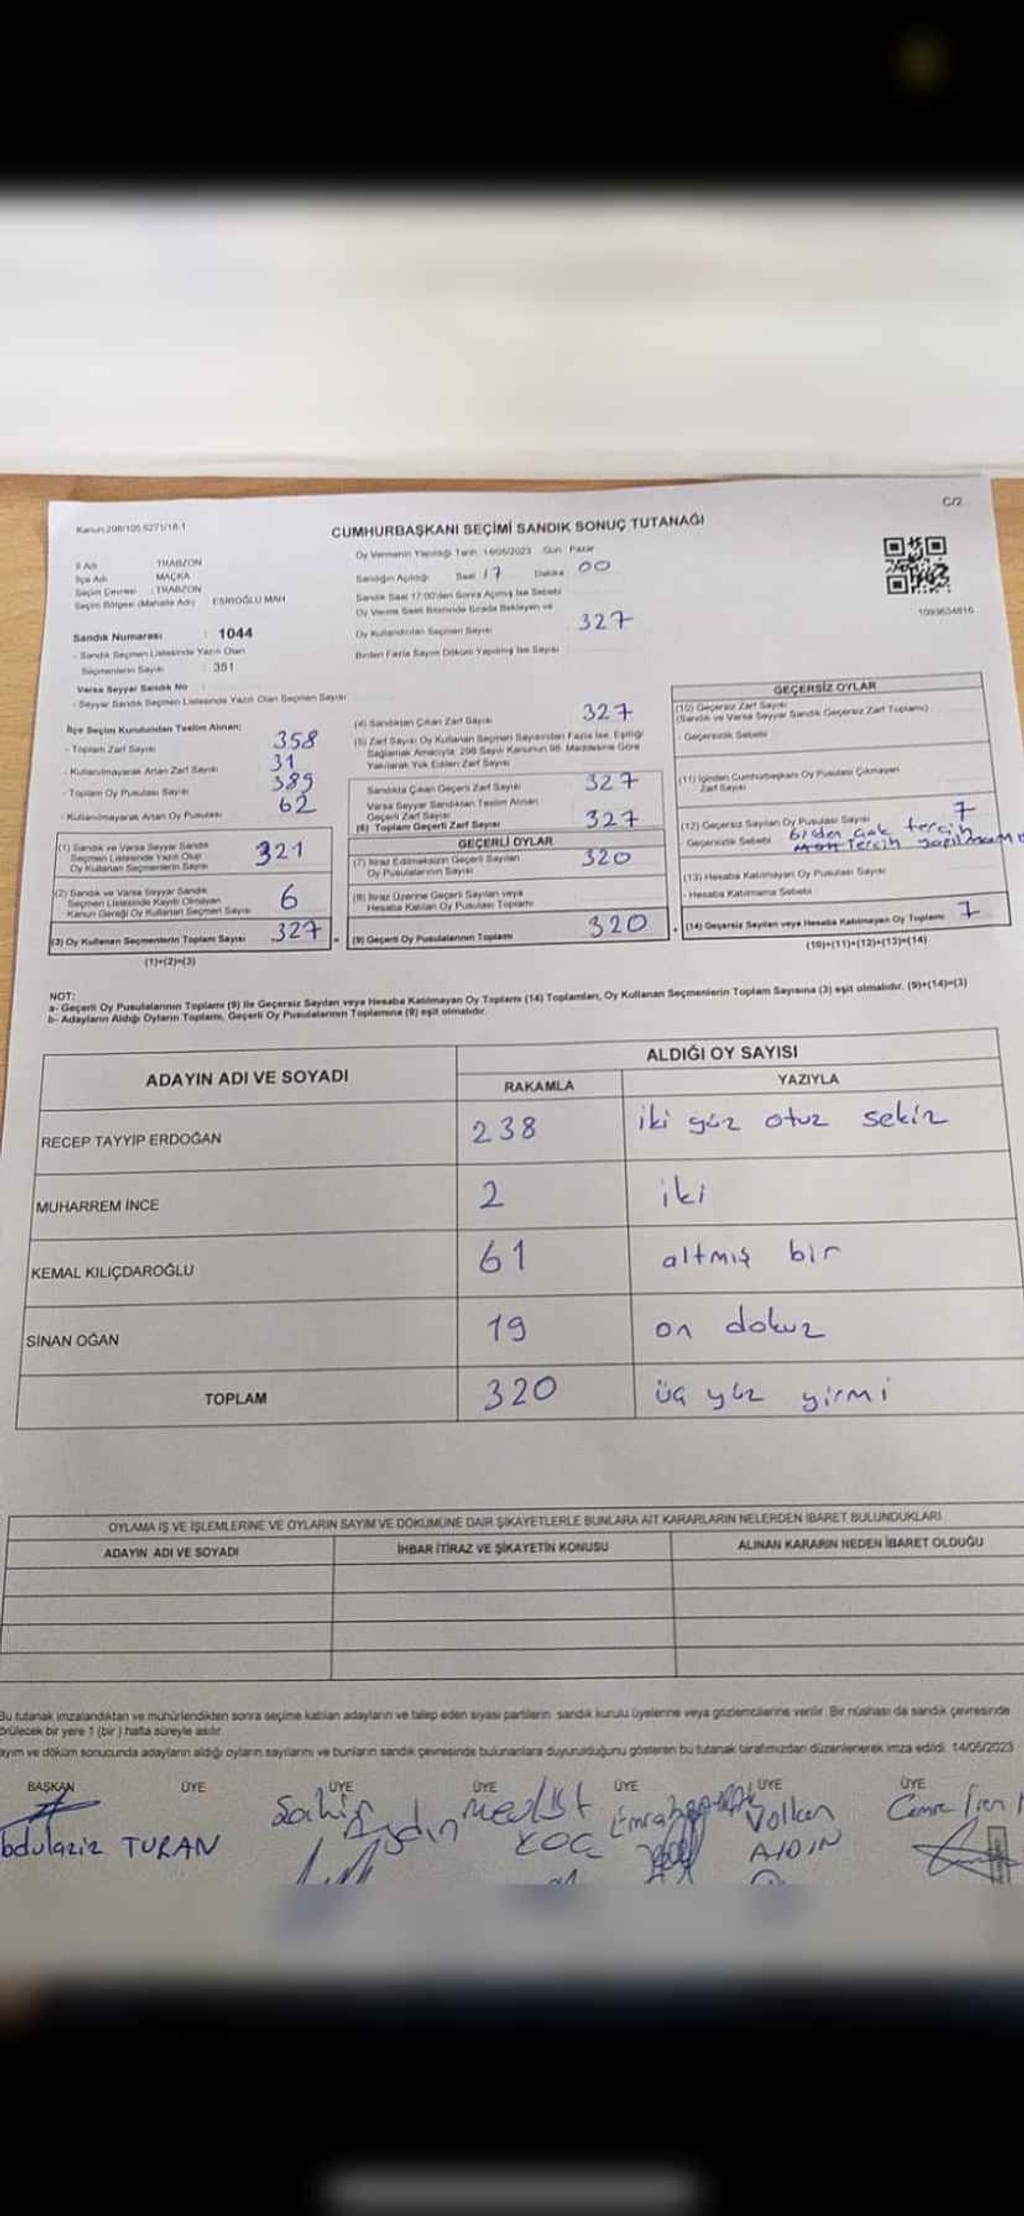 Kanun 298/105 6271/18-1
C/2
CUMHURBAŞKANI SEÇİMİ SANDIK SONUÇ TUTANAĞI
İl Adı TRABZON
İlçe Adı MAÇKA
Seçim Çevresi : TRABZON
Seçim Bölgesi (Mahalle Adı) ESİROĞLU MAH
Sandık Numarası : 1044
- Sandık Seçmen Listesinde Yazılı Olan
Seçmenlerin Sayısı : 351
Varsa Seyyar Sandık No
- Seyyar Sandık Seçmen Listesinde Yazılı Olan Seçmen Sayısı
Oy Vermenin Yapıldığı Tarih 14/05/2023 Gün Pazar
Sandığın Açıldığı Saat 17 Dakika 00
Sandık Saat 17:00'den Sonra Açılmış İse Sebebi
Oy Verme Saati Bitiminde Sırada Bekleyen ve
Oy Kullandırılan Seçmen Sayısı 327
Birden Fazla Sayım Döküm Yapılmış İse Sayısı
1093634816
İlçe Seçim Kurulundan Teslim Alınan:
- Toplam Zarf Sayısı 358
- Kullanılmayarak Artan Zarf Sayısı 31
- Toplam Oy Pusulası Sayısı 389
- Kullanılmayarak Artan Oy Pusulası 62
(1) Sandık ve Varsa Seyyar Sandık
Seçmen Listesinde Yazılı Olup
Oy Kullanan Seçmenlerin Sayısı 321
(2) Sandık ve Varsa Seyyar Sandık
Seçmen Listesinde Kayıtlı Olmayan
Kanun Gereği Oy Kullanan Seçmen Sayısı 6
(3) Oy Kullanan Seçmenlerin Toplam Sayısı 327
(1)+(2)=(3)
(4) Sandıktan Çıkan Zarf Sayısı 327
(5) Zarf Sayısı Oy Kullanan Seçmen Sayısından Fazla İse, Eşitliği
Sağlamak Amacıyla, 298 Sayılı Kanunun 98. Maddesine Göre
Yakılarak Yok Edilen Zarf Sayısı
Sandıkta Çıkan Geçerli Zarf Sayısı 327
Varsa Seyyar Sandıktan Teslim Alınan
Geçerli Zarf Sayısı
(6) Toplam Geçerli Zarf Sayısı 327
GEÇERLİ OYLAR
(7) İtiraz Edilmeksizin Geçerli Sayılan
Oy Pusulalarının Sayısı 320
(8) İtiraz Üzerine Geçerli Sayılan veya
Hesaba Katılan Oy Pusulası Toplamı
(9) Geçerli Oy Pusulalarının Toplamı 320
GEÇERSİZ OYLAR
(10) Geçersiz Zarf Sayısı
(Sandık ve Varsa Seyyar Sandık Geçersiz Zarf Toplamı)
- Geçersizlik Sebebi
(11) İçinden Cumhurbaşkanı Oy Pusulası Çıkmayan
Zarf Sayısı
(12) Geçersiz Sayılan Oy Pusulası Sayısı 7
Geçersizlik Sebebi birden çok tercih
Tercih yapılmamı
(13) Hesaba Katılmayan Oy Pusulası Sayısı
- Hesaba Katılmama Sebebi
(14) Geçersiz Sayılan veya Hesaba Katılmayan Oy Toplamı 7
(10)+(11)+(12)+(13)=(14)
NOT:
a- Geçerli Oy Pusulalarının Toplamı (9) ile Geçersiz Sayılan veya Hesaba Katılmayan Oy Toplamı (14) Toplamları, Oy Kullanan Seçmenlerin Toplam Sayısına (3) eşit olmalıdır. (9)+(14)=(3)
b- Adayların Aldığı Oyların Toplamı, Geçerli Oy Pusulalarının Toplamına (9) eşit olmalıdır.
ADAYIN ADI VE SOYADI ALDIĞI OY SAYISI
RAKAMLA YAZIYLA
RECEP TAYYİP ERDOĞAN 238 iki yüz otuz sekiz
MUHARREM İNCE 2 iki
KEMAL KILIÇDAROĞLU 61 altmış bir
SİNAN OĞAN 19 on dokuz
TOPLAM 320 üç yüz yirmi
OYLAMA İŞ VE İŞLEMLERİNE VE OYLARIN SAYIM VE DÖKÜMÜNE DAİR ŞİKAYETLERLE BUNLARA AİT KARARLARIN NELERDEN İBARET BULUNDUKLARI
ADAYIN ADI VE SOYADI İHBAR İTİRAZ VE ŞİKAYETİN KONUSU ALINAN KARARIN NEDEN İBARET OLDUĞU
Bu tutanak imzalandıktan ve mühürlendikten sonra seçime katılan adayların ve talep eden siyasi partilerin sandık kurulu üyelerine veya gözlemcilerine verilir. Bir nüshası da sandık çevresinde
örülecek bir yere 1 (bir) hafta süreyle asılır.
ayım ve döküm sonucunda adayların aldığı oyların sayılarını ve bunların sandık çevresinde bulunanlara duyurulduğunu gösteren bu tutanak tarafımızdan düzenlenerek imza edildi. 14/05/2023
BAŞKAN ÜYE ÜYE ÜYE ÜYE ÜYE ÜYE
bdulaziz TURAN Şahin Aydın Mevlüt KOÇ Emrah Volkan AYDIN Cemre